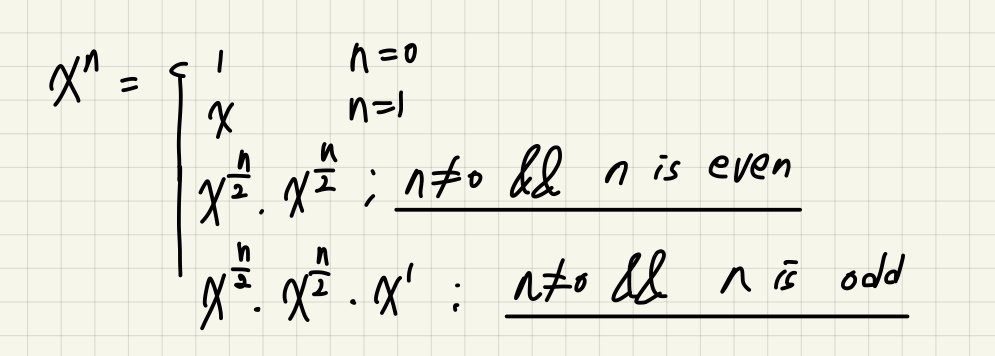 xⁿ = { 1 n=0
x n=1
x^(n/2) · x^(n/2) ; n≠0 && n is even
x^(n/2) · x^(n/2) · x¹ : n≠0 && n is odd